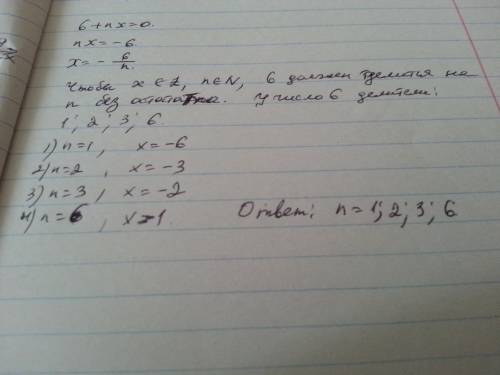 6+nx=0.
nx=-6.
x=-6/n.
Чтобы x∈Z, n∈N, 6 должен делится на
n без остатка. У число 6 делители:
1; 2; 3; 6.
1) n=1, x=-6
2) n=2, x=-3
3) n=3, x=-2
4) n=6, x-1.
Ответ: n=1; 2; 3; 6